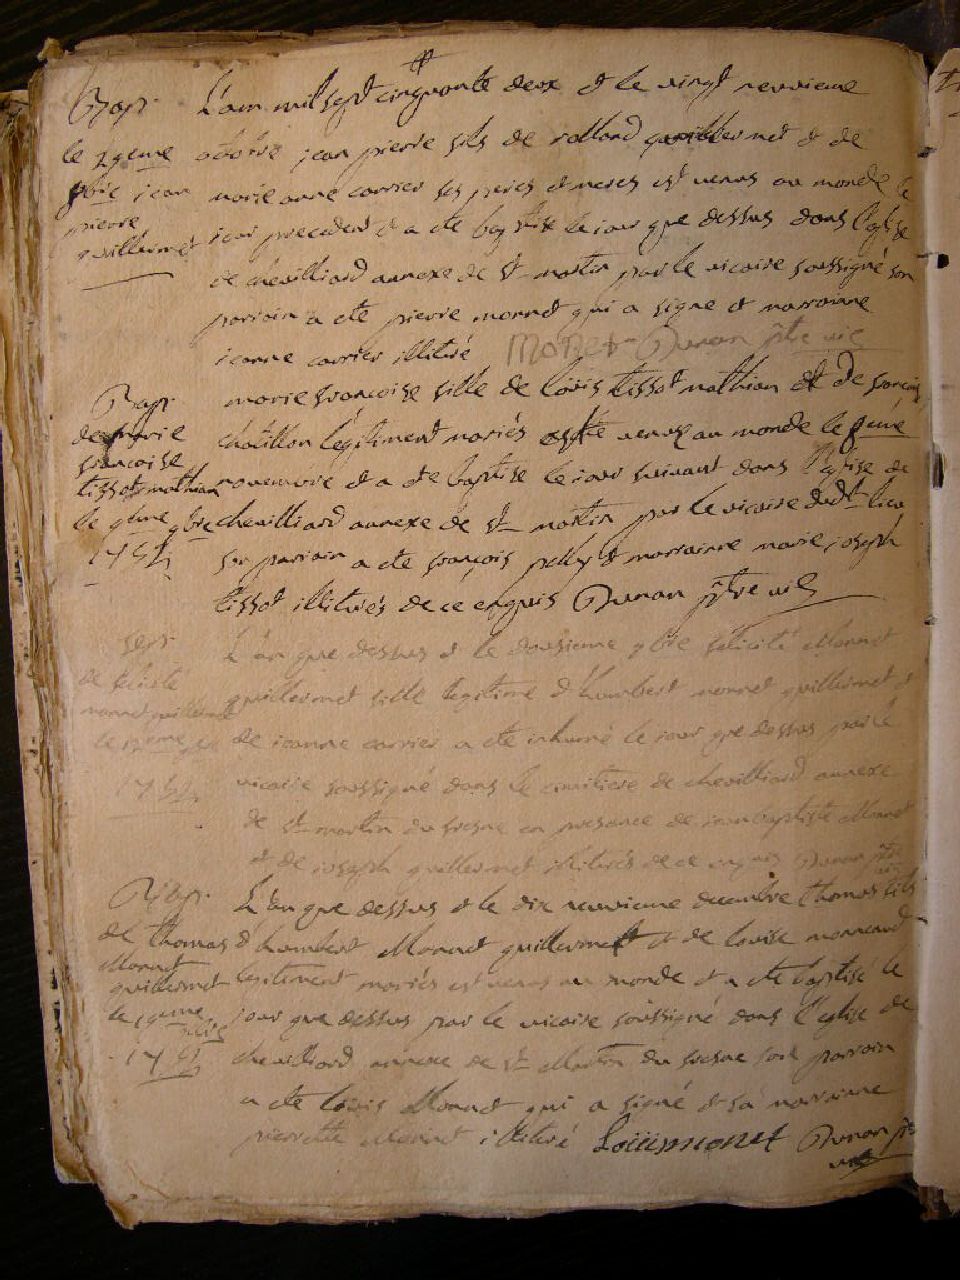 Bap.
le 29eme
8bre jean
pierre
guillermet
L'an mil sept cinquante deux et le vingt neuvieme
octobre jean pierre fils de rolland guillermet et de
marie anne carrier ses peres et meres est venus au monde le
jour precedent et a ete baptise le jour que dessus dans l'eglise
de chevilliard annexe de St martin par le vicaire soussigné son
parrain a ete pierre monnet qui a signe et marrainne
jeanne carrier illitiré monet Dunan ptre vic
Bap.
de marie
francoise
tissot mathian
le 9eme 9bre
1752
marie francoise fille de louis tissot mathian et de francoise
chatillon legitiment mariés est venue au monde le
novembre et a ete baptise le jour suivant dans l'eglise de
chevilliard annexe de St martin par le vicaire dudt lieu
son parrain a ete françois et marrainne marie joseph
tissot illitirés de ce enquis Dunan ptre vic
sep.
de felicité
monnet guillermet
le 12eme 9bre
1752
L'an que dessus et le douzieme 9bre felicité Monnet
guillermet fille legitime d'humbert monnet guillermet et
de jeanne carrier a ete inhumé le jour que dessus par le
vicaire soussigné dans le cimitiere de chevilliard annexe
de St martin du fresne en presance de jean baptiste Monnet
et de joseph guillermet illitirés de ce enquis Dunan ptre
vic
Bap.
de thomas
Monnet
guillermet
le 19eme
1752
L'an que dessus et le dix neuvieme decembre thomas fils
d'humbert Monnet guillermet et de louise
legitiment mariés est venus au monde et a ete baptisé le
jour que dessus par le vicaire soussigné dans l'eglise de
chevilliard annexe de St Martin du fresne son parrain
a ete louis Monnet qui a signé et sa marrainne
pierrette Monnet illitiré Loüis monet Dunan ptre
vic